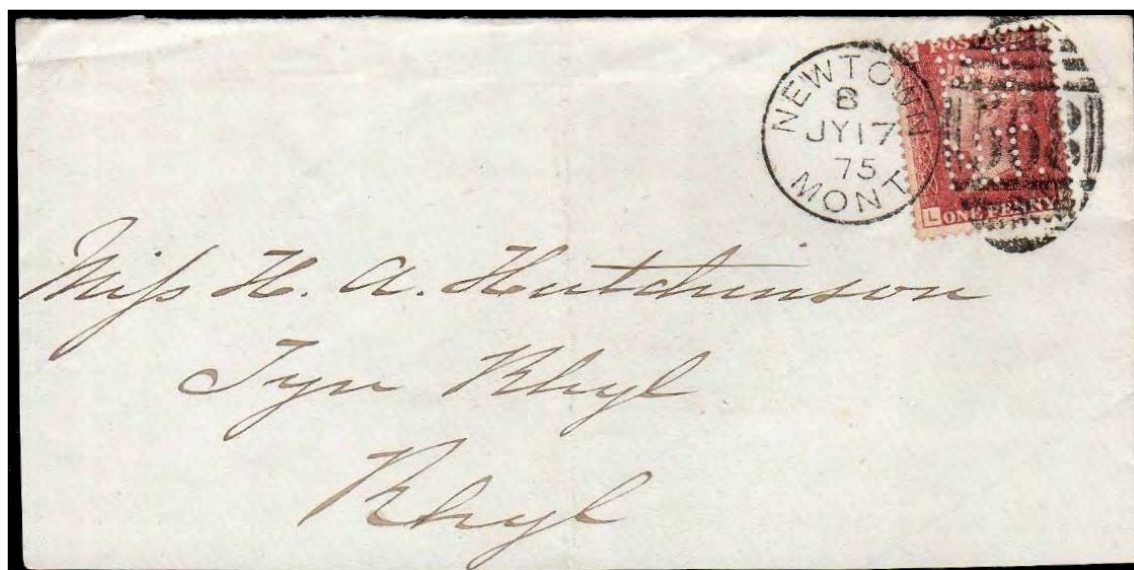 NEWTOWN
B
JY 17
75
MONT
POSTAGE
L ONE PENNY
Miss H. A. Hutchinson
Tyn Rhyl
Rhyl